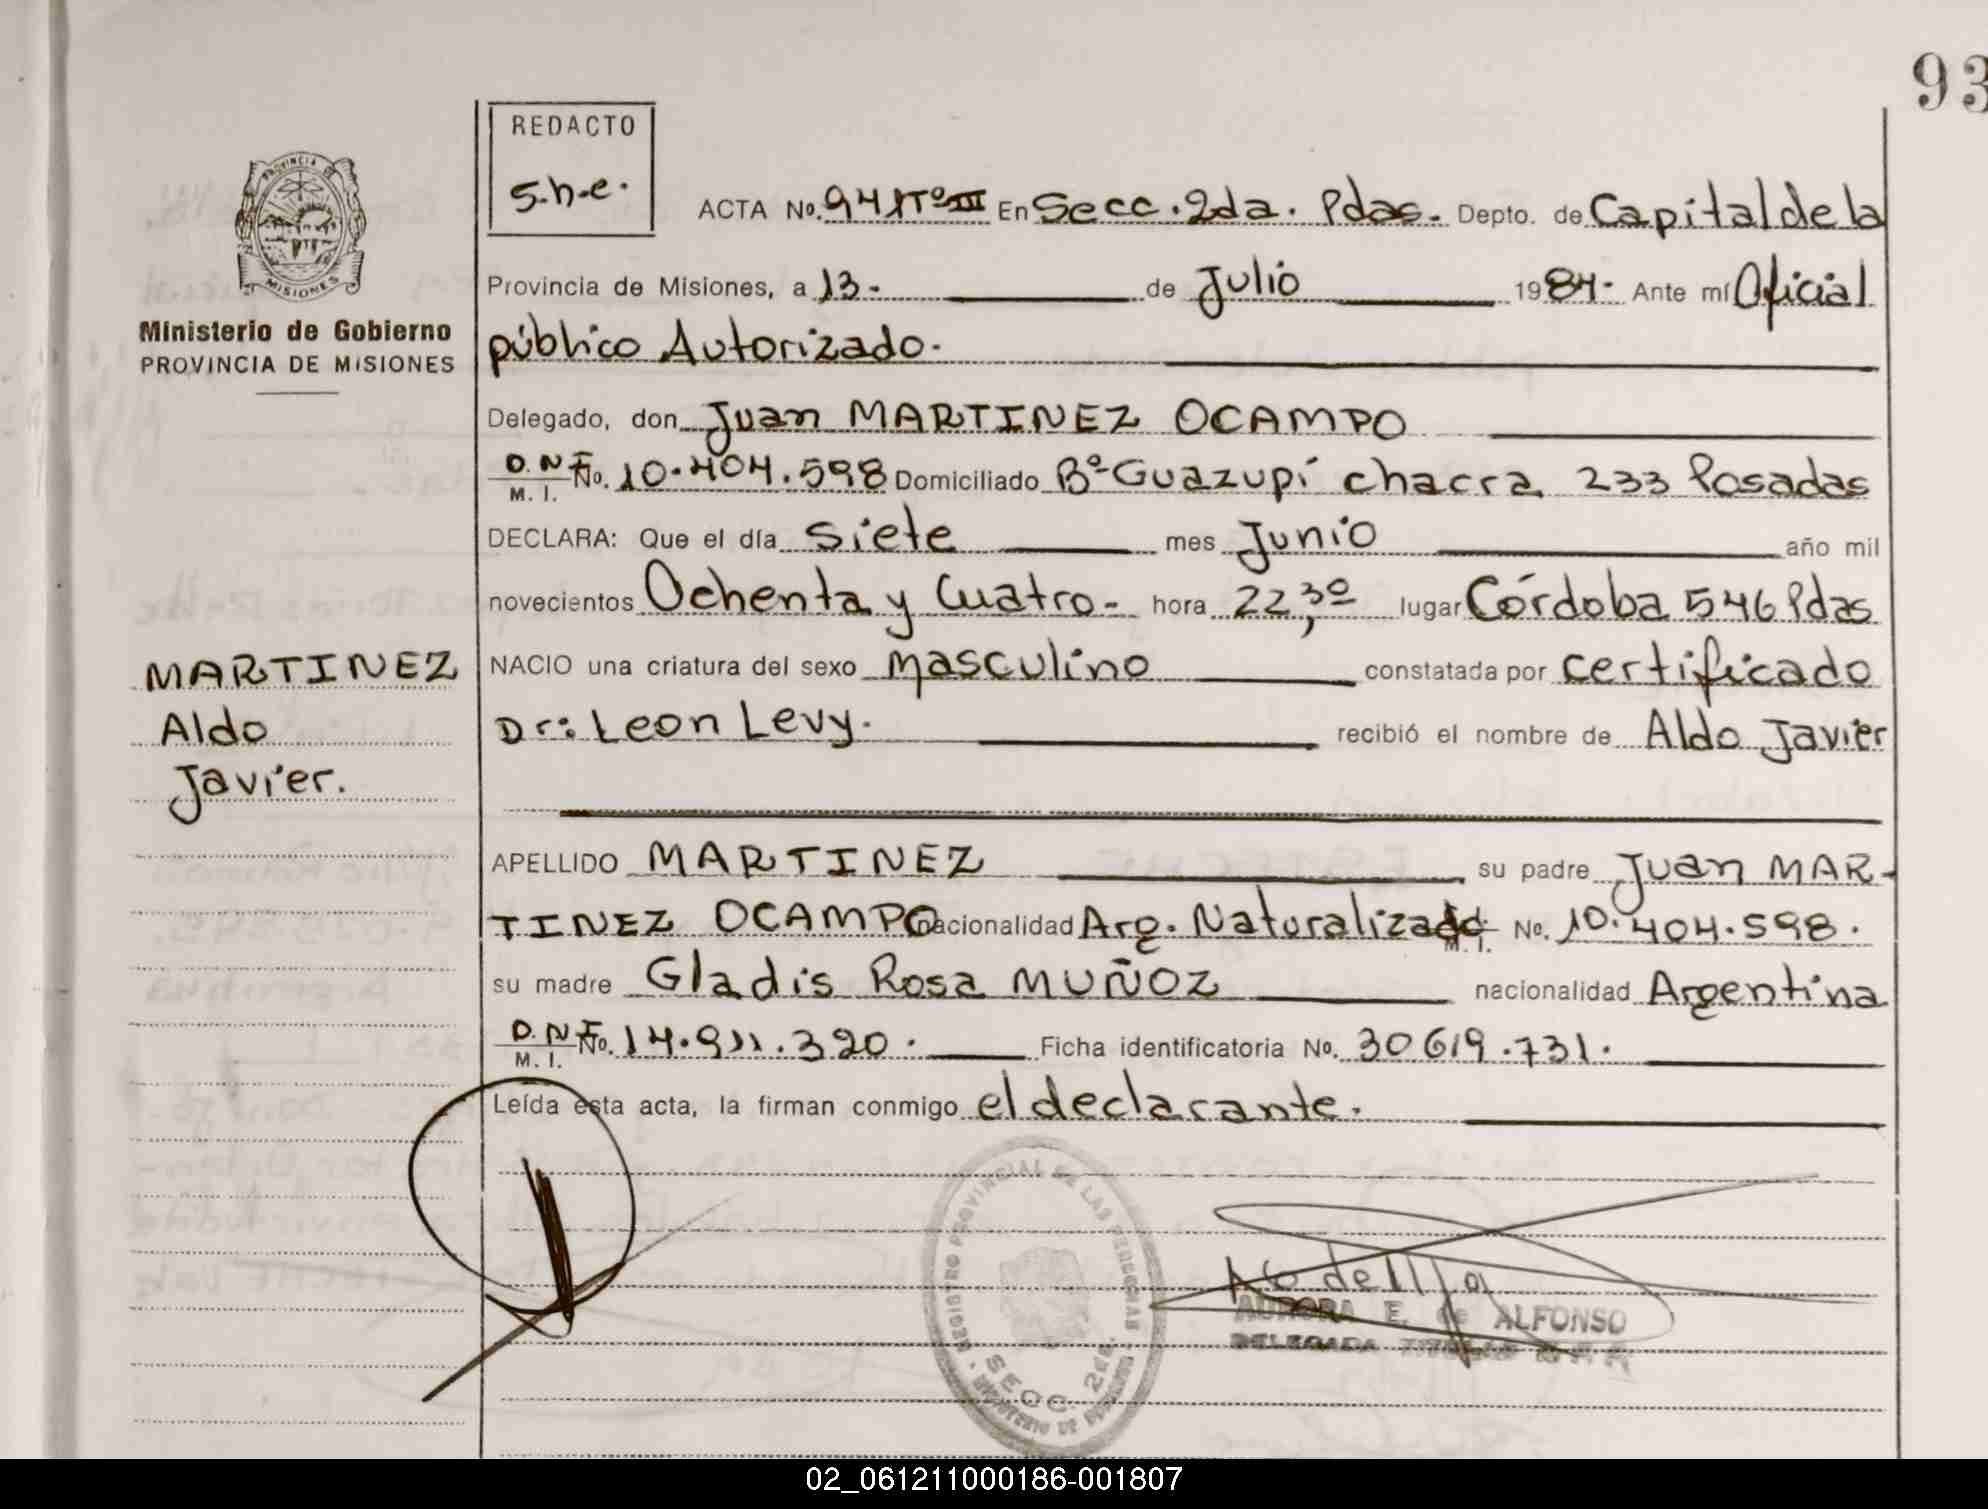 93
REDACTO
S.h.e.
PROVINCIA DE
MISIONES
Ministerio de Gobierno
PROVINCIA DE MISIONES
ACTA No. 941Tº III En Secc. 2da. Pdas. Depto. de Capital de la
Provincia de Misiones, a 13. de Julio 1984. Ante mí Oficial
público Autorizado.
Delegado, don Juan MARTINEZ OCAMPO
D.N.I. M. I. No. 10.404.598 Domiciliado Bº Guazupí chacra 233 Posadas
DECLARA: Que el día Siete mes Junio año mil
novecientos Ochenta y Cuatro- hora 22,30 lugar Córdoba 546 Pdas
NACIO una criatura del sexo masculino constatada por certificado
Dr: Leon Levy. recibió el nombre de Aldo Javier
MARTINEZ
Aldo
Javier.
APELLIDO MARTINEZ su padre Juan MAR-
TINEZ OCAMPO nacionalidad Arg. Naturalizado M. I. No. 10.404.598.
su madre Gladis Rosa MUÑOZ nacionalidad Argentina
D.N.I. M. I. No. 14.911.320. Ficha identificatoria No. 30619.731.
Leída esta acta, la firman conmigo el declarante.
REGISTRO PROVINCIAL DE LAS PERSONAS
SECC. 2da.
AURORA E. de ALFONSO
DELEGADA TITULAR
02_061211000186-001807